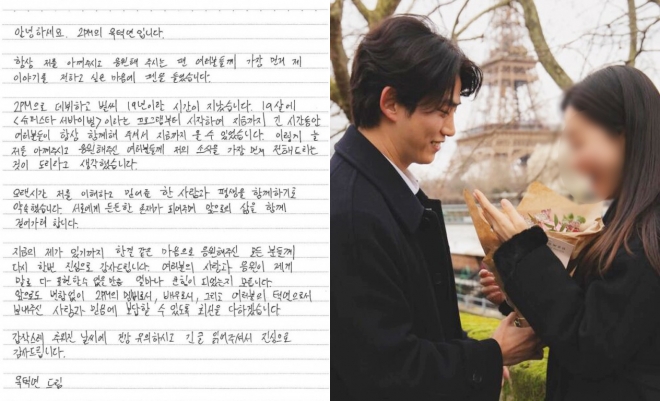 안녕하세요. 2PM의 옥택연입니다.
항상 저를 아껴주시고 응원해 주시는 팬 여러분들께 가장 먼저 제
이야기를 전하고 싶은 마음에 펜을 들었습니다.
2PM으로 데뷔하고 벌써 19년이란 시간이 지났습니다. 19살에
<슈퍼스타 서바이벌>이라는 프로그램부터 시작하여 지금까지 긴 시간동안
여러분들이 항상 함께해 주셔서 지금까지 올 수 있었습니다. 이렇게 늘
저를 아껴주시고 응원해주신 여러분들께 저의 소식을 가장 먼저 전해드리는
것이 도리라고 생각했습니다.
오랜시간 저를 이해하고 믿어준 한 사람과 평생을 함께하기로
약속했습니다. 서로에게 든든한 존재가 되어주며 앞으로의 삶을 함께
걸어가려 합니다.
지금의 제가 있기까지 한결 같은 마음으로 응원해주신 모든 분들께
다시 한번 진심으로 감사드립니다. 여러분의 사랑과 응원이 제게
말로 다 표현할수 없을만큼 얼마나 큰힘이 되었는지 모릅니다
앞으로도 변함없이 2PM의 멤버로서, 배우로서, 그리고 여러분의 택연으로서
보내주신 사랑과 믿음에 보답할 수 있도록 최선을 다하겠습니다
갑작스레 추워진 날씨에 건강 유의하시고 긴 글 읽어주셔서 진심으로
감사드립니다.
옥택연 드림